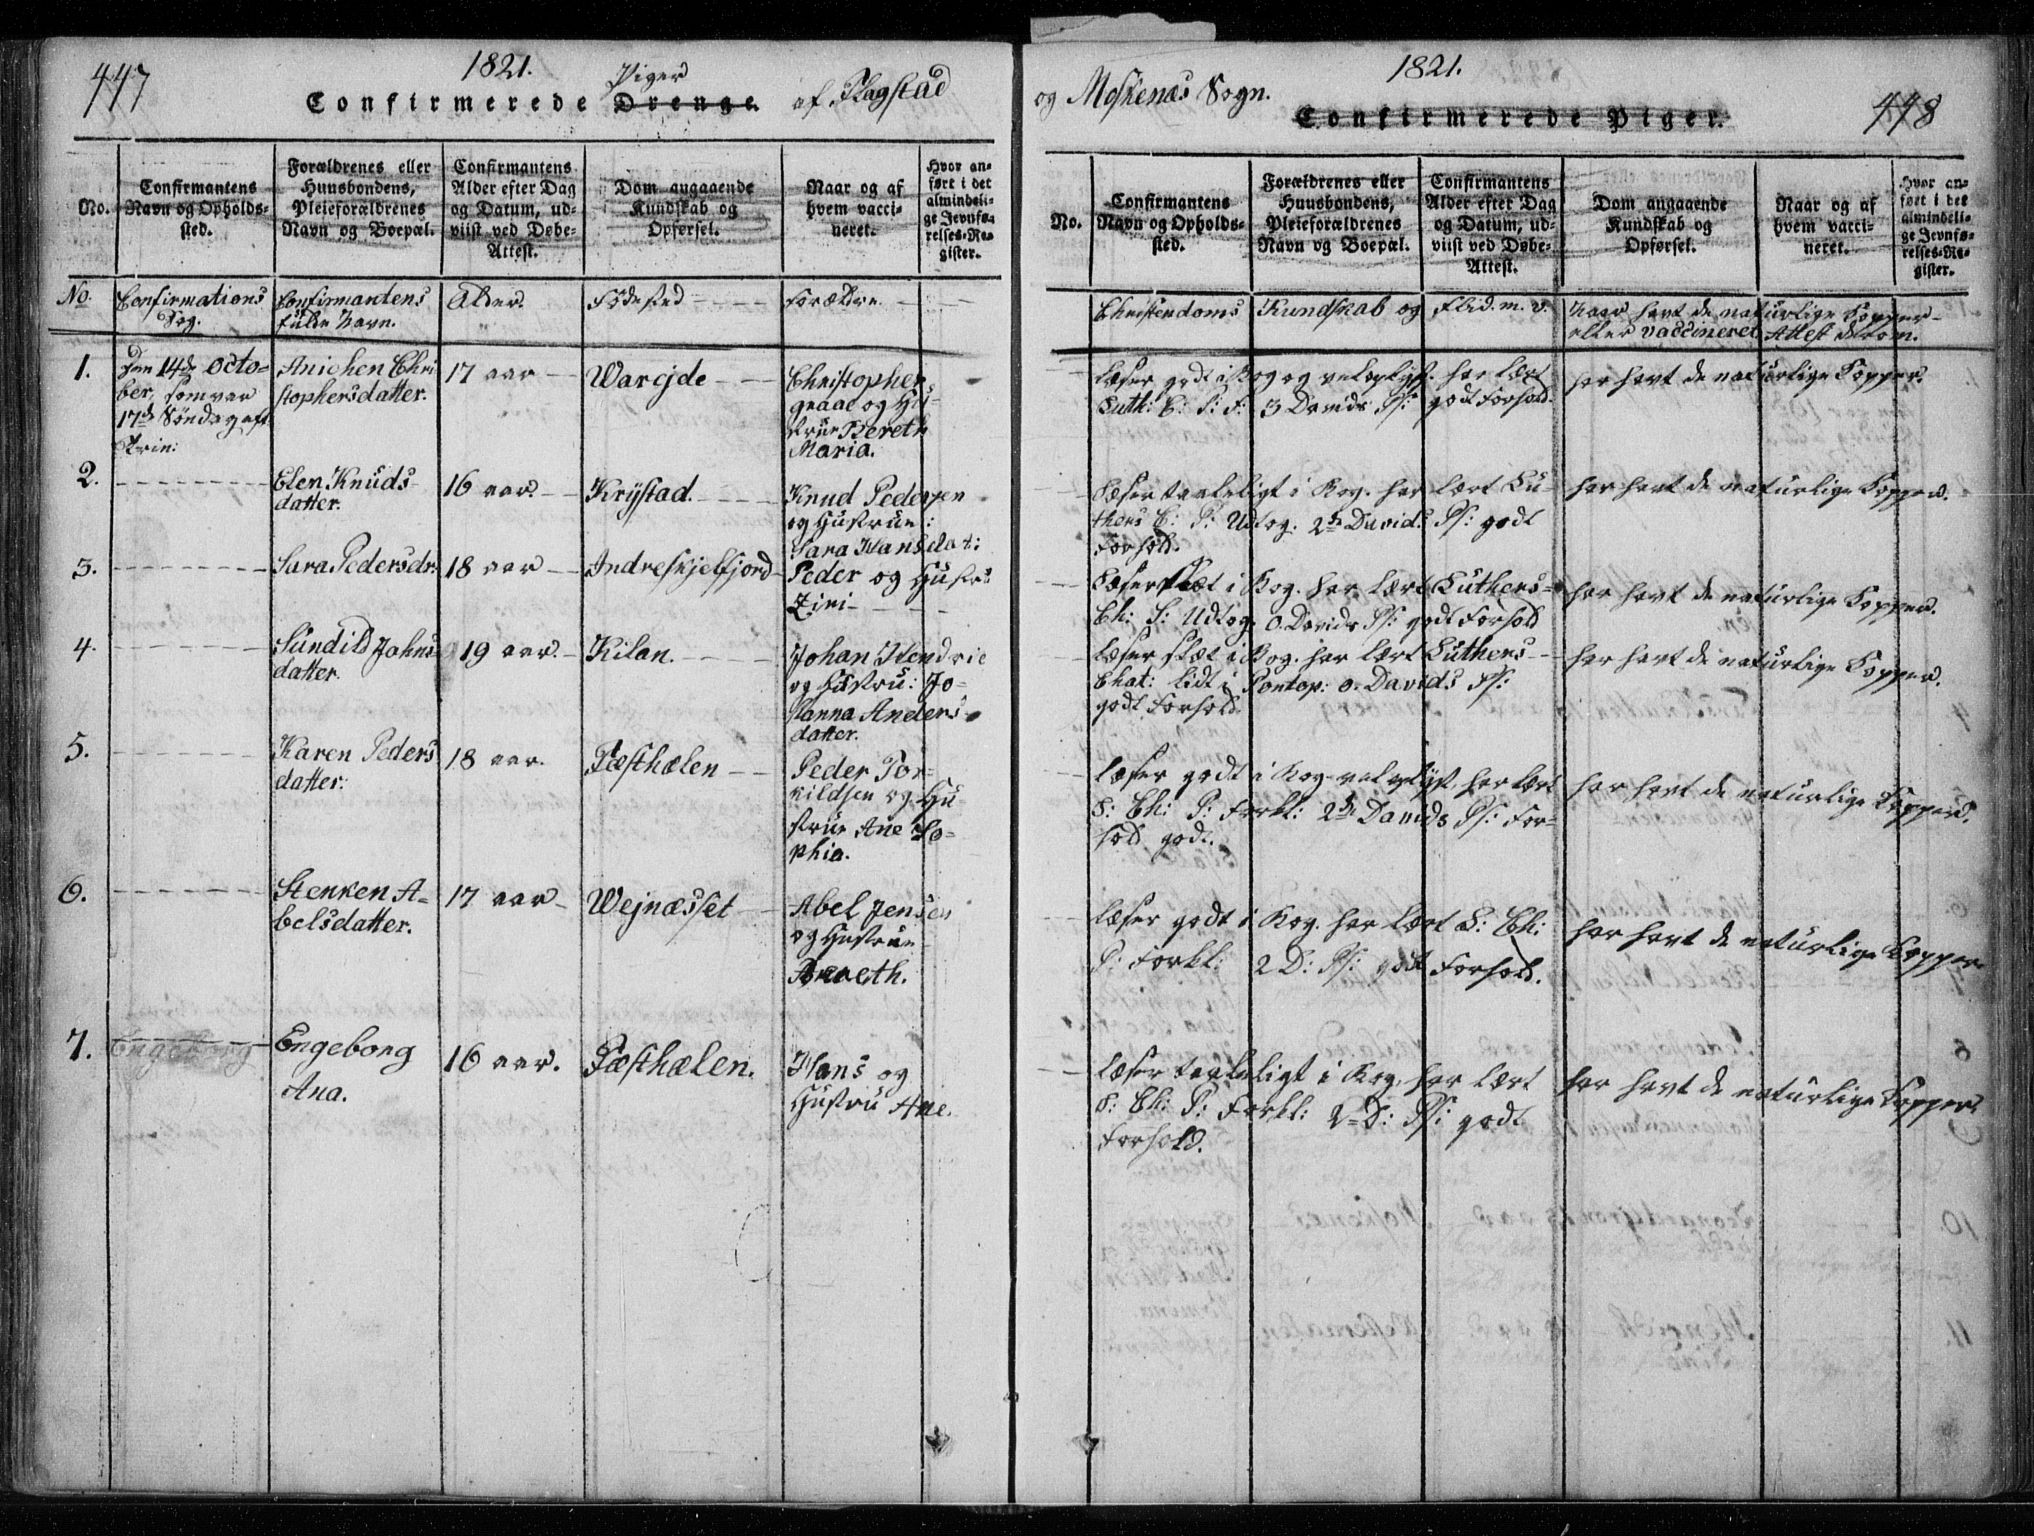 447
1821.
Piger
Confirmerede Drenge. af Flagstad
No.
Confirmantens
Navn og Opholds-
sted.
Forældrenes eller
Huusbondens,
Pleieforældrenes
Navn og Boepæl.
Confirmantens
Alder efter Dag
og Datum, ud-
viist ved Døbe-
Attest.
Dom angaaende
Kundskab og
Opførsel.
Naar og af
hvem vacci-
neret.
Hvor an-
ført i det
almindeli-
ge Jevnfø-
relses-Re-
gister.
No.
Confirmations
Dag.
Confirmantens
fulde Navn.
Alder.
Fødested
Forældre.
1.
Den 14de Octo-
ber, som var
17de Søndag eft.
Trin:
Anichen Chri
stophersdatter.
17 aar
Wargjde
Christopher
graae og Hu-
strue Bereth
Maria.
2.
Elen Knuds
datter.
16 aar.
Krystad.
Knud Pedersen
og Hustrue:
Sara Hansdat:
3.
Sara Pedersdr.
18 aar
Indreskjelfjord
Peder og Hustru
Ziri
4.
Sundild Johns
datter.
19 aar.
Kilan.
Johan Hendric
og Hustru: Jo-
hanna Anders
datter.
5.
Karen Peders
datter:
18 aar.
Fæsthælen
Peder Tor-
kildsen og Hu
strue Ane So-
phia.
6.
Stenken A-
belsdatter.
17 aar
Wejnæsset
Abel Jensen
og Hustrue
7.
Engeborg
Engeborg
Ana.
16 aar.
Fæsthælen.
Hans og
Hustru Ane.
1821.
og Moskenæs Sogn.
Confirmerede Piger.
448
No.
Confirmantens
Navn og Opholds-
sted.
Forældrenes eller
Huusbondens,
Pleieforældrenes
Navn og Boepæl.
Confirmantens
Alder efter Dag
og Datum, ud-
viist ved Døbe-
Attest.
Dom angaaende
Kundskab og
Opførsel.
Naar og af
hvem vacci-
neret.
Hvor an-
ført i det
almindeli-
ge Jevnfø-
relses-Re-
gister.
Christendoms Kundskab og Flid. m. v.
Naar havt de naturlige Kopper
eller vaccineret Attest derom.
læser godt i Bog og vel oplyst. har lært
Luth: C: P: F: 3 Davids Ps: godt Forhold.
har havt de naturlige Kopper.
læser taaleligt i Bog. har lært Lu-
thers C: P: Udtog. 2de Davids Ps: godt
Forhold.
har havt de naturlige Kopper.
læser slæt i Bog. har lært Luthers
Ch: P: Udtog. 0. Davids Ps: godt Forhold
har havt de naturlige Kopper.
læser slæt i Bog. har lært Luthers
Chat: lidt i Pontop: 0. Davids Ps:
godt Forhold.
har havt de naturlige Kopper.
læser godt i Bog vel oplyst, har lært
L: Ch: P: Forkl: 2de Davids Ps: For-
hold godt.
har havt de naturlige Kopper.
læser godt i Bog. har lært L: Ch:
P: Forkl: 2 D: Ps: godt Forhold.
har havt de naturlige Kopper
læser taaleligt i Bog, har lært
L: Ch: P: Forkl: 2 D: Ps: godt
Forhold.
har havt de naturlige Kopper